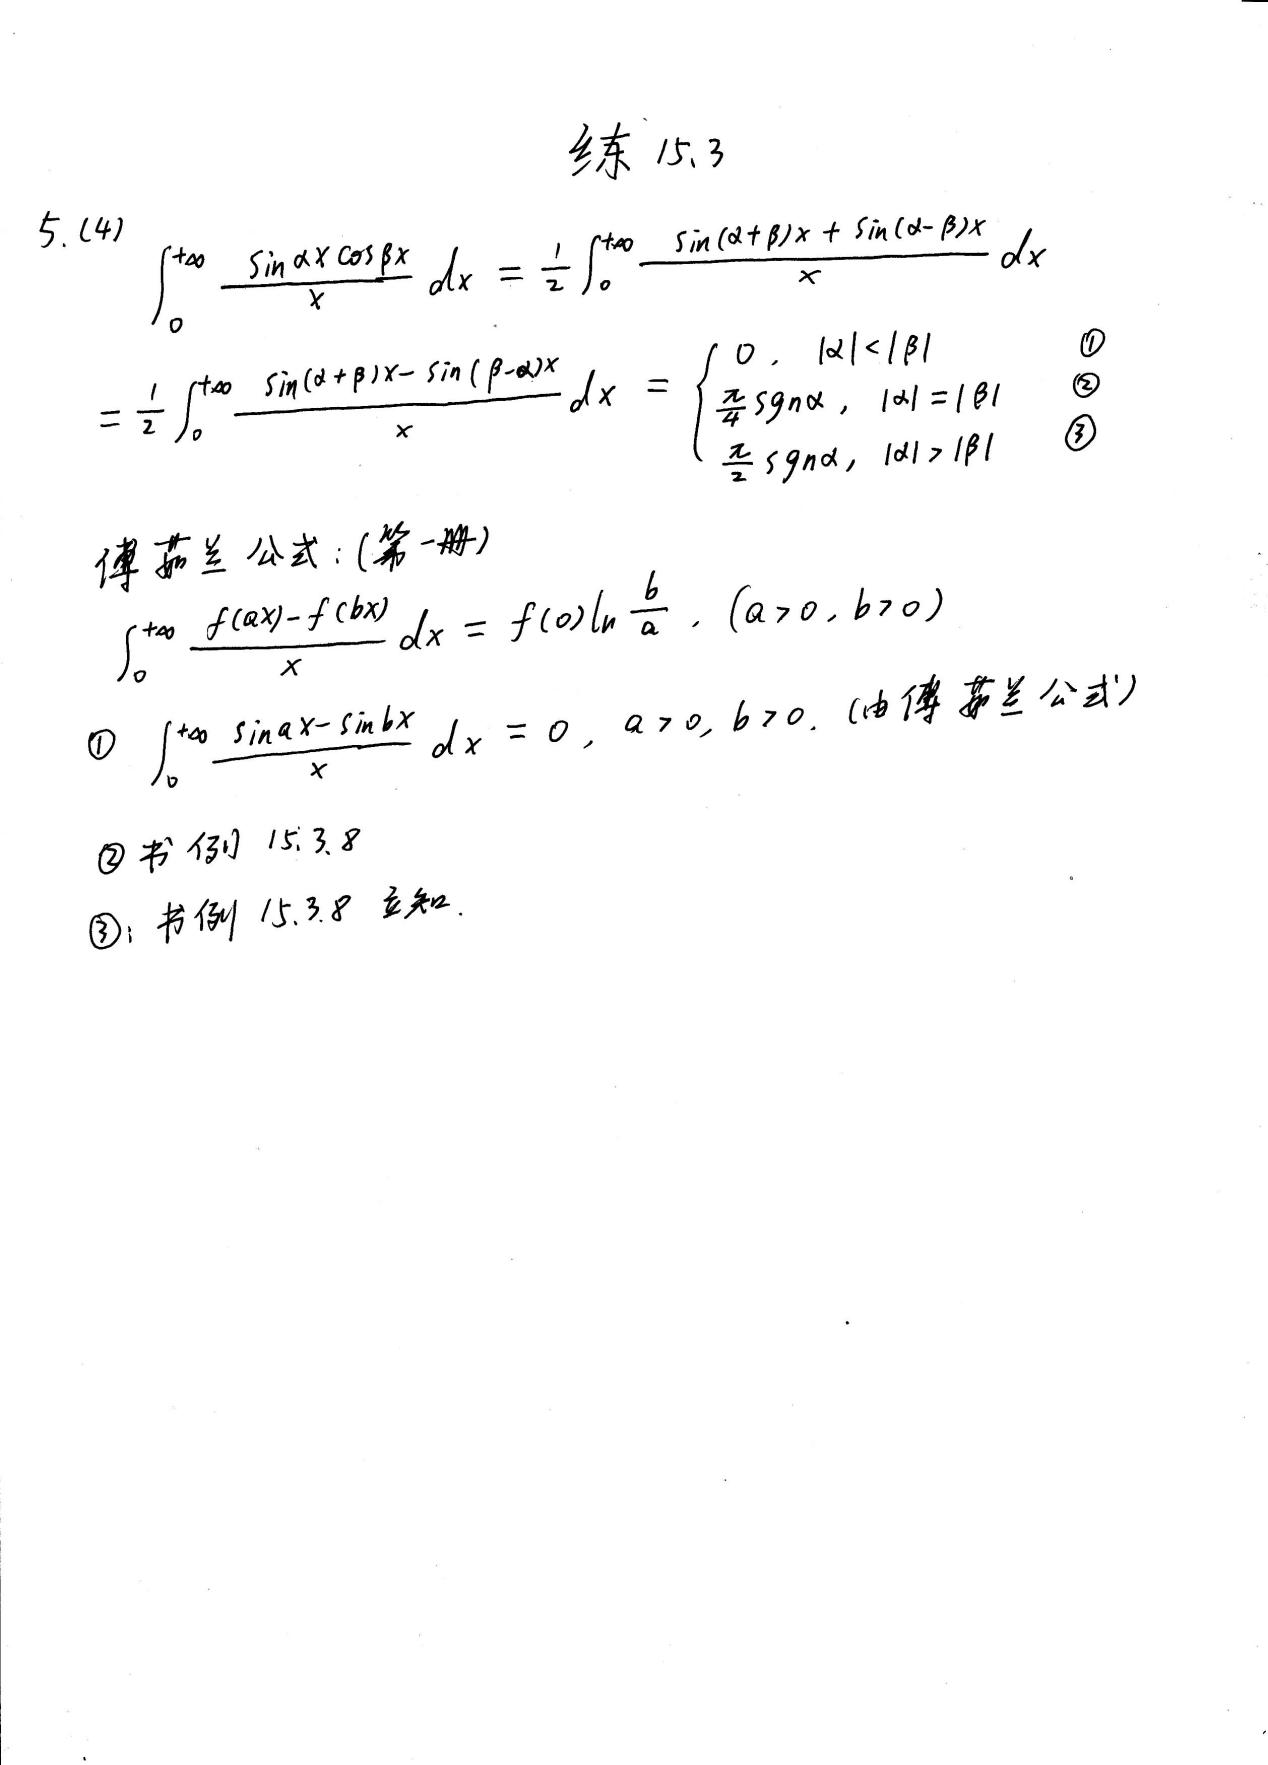 练 15.3
5.(4)
∫₀^{+∞} \frac{sinαx cosβx}{x} dx = \frac{1}{2} ∫₀^{+∞} \frac{sin(α+β)x + sin(α-β)x}{x} dx
= \frac{1}{2} ∫₀^{+∞} \frac{sin(α+β)x - sin(β-α)x}{x} dx = { 0, |α|<|β| ①
\frac{π}{4} sgnα, |α|=|β| ②
\frac{π}{2} sgnα, |α|>|β| ③
傅茹兰公式:(第一册)
∫₀^{+∞} \frac{f(ax)-f(bx)}{x} dx = f(0)ln \frac{b}{a}. (a>0, b>0)
① ∫₀^{+∞} \frac{sinax-sinbx}{x} dx = 0, a>0, b>0. (由傅茹兰公式)
② 书例 15.3.8
③: 书例 15.3.8 立知.